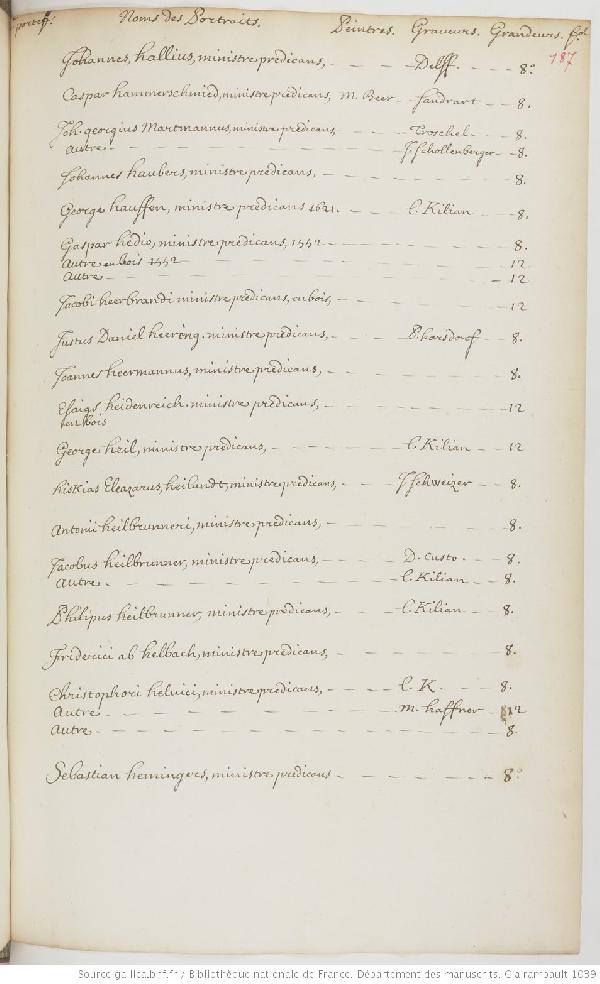 portef. Noms des Portraits. Peintres. Graveurs. Grandeurs. fol.
187
Johannes, hallius, ministre prédicans, Delff. 8.
Caspar hammerschmied, ministre prédicans, M. Beer Sandrart 8.
Joh. georgius Martmannus, ministre prédicans Troschel 8.
autre. J. Schollenberger 8.
Johannes haubers, ministre prédicans, 8.
George hauffen, ministre prédicans 1621. L. Kilian 8.
Gaspar hédio, ministre prédicans, 1552 8.
autre en bois 1552 12
autre 12
Jacobi heerbrandi ministre prédicans, en bois, 12
Justus Daniel heering, ministre prédicans, P. harsdorf 8.
Joannes heermannus, ministre prédicans, 8.
Esaias heidenreich, ministre prédicans, 12
en bois
George heil, ministre prédicans, L. Kilian 12
hiskias Eleazarus, heilandt, ministre prédicans, J. Schweizer 8.
Antonii heilbrunneri, ministre prédicans, 8.
Jacobus heilbrunner, ministre prédicans, D. Custo. 8.
autre. L. Kilian 8.
Philipus heilbrunner, ministre prédicans, L. Kilian 8.
Friderici ab helbach, ministre prédicans, 8.
Christophori heluici, ministre prédicans, L. K. 8.
Autre M. haffner 12
Autre 8.
Sebastian heminges, ministre prédicans 8.
Source gallica.bnf.fr / Bibliothèque nationale de France. Département des manuscrits. Clairambault 1039